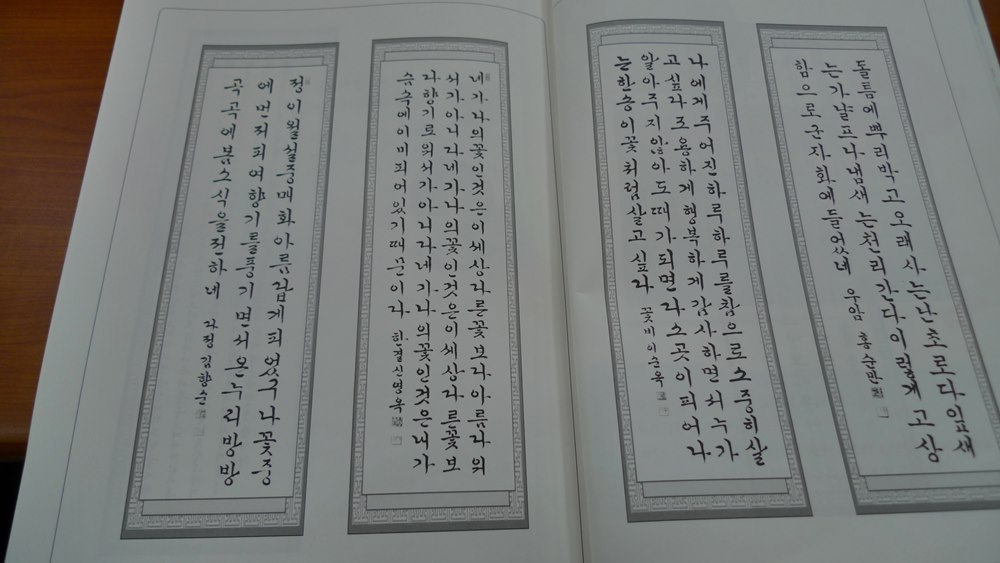 정이월설중매화아름답게피었구나꽃중
에먼저피여향기를풍기면서온누리방방
곡곡에봄소식을전하네 라정김향순
네가나의꽃인것은이세상다른꽃보다아름다워
서가아니라네가나의꽃인것은이세상다른꽃보
다향기로워서가아니라네가나의꽃인것은내가
슴속에이미피어있기때문이다 한결신영옥
나에게주어진하루하루를참으로소중히살
고싶다조용하게행복하게감사하면서누가
알아주지않아도때가되면다소곳이피어나
는한송이꽃처럼살고싶다 꽃비이순옥
돌틈에뿌리박고오래사는난초로다잎새
는가날프나냄새는천리간다이렇게고상
함으로군자화에들었네 우암홍순만